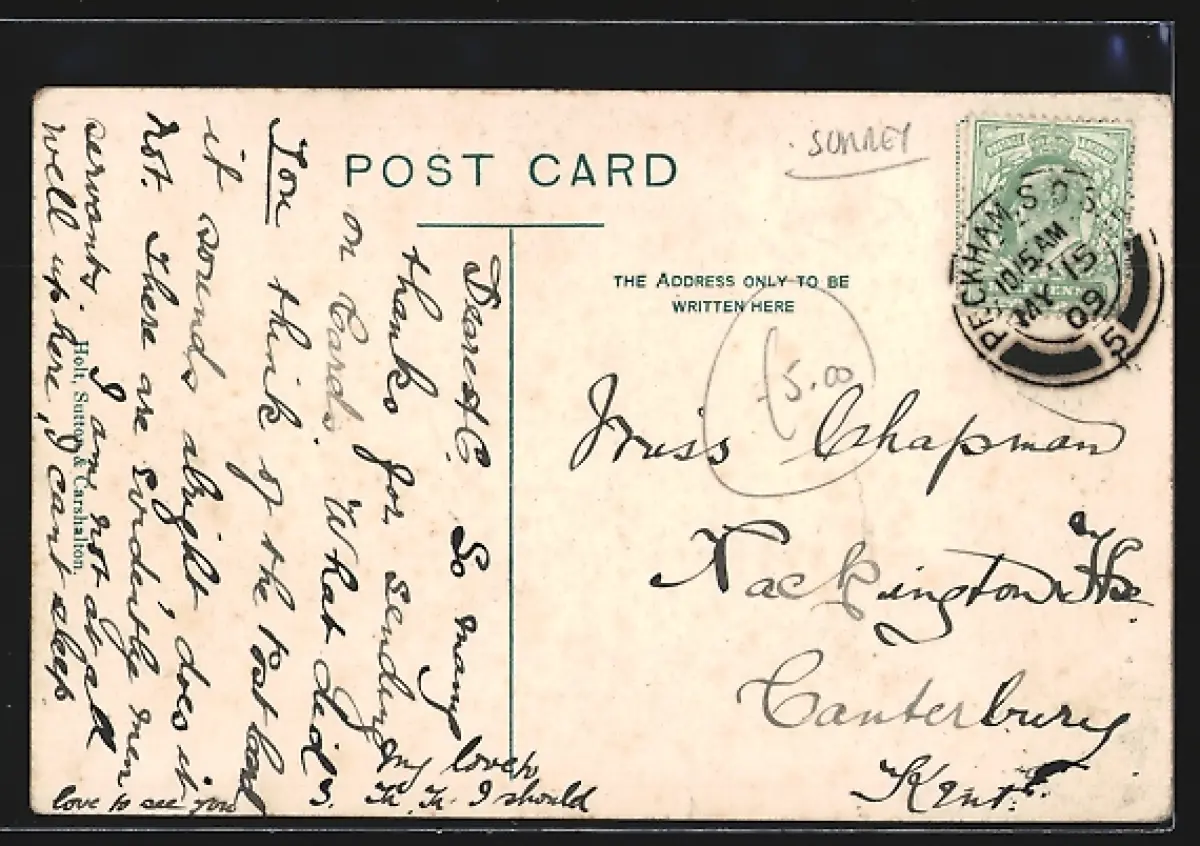 POST CARD
SURREY
THE ADDRESS ONLY TO BE
WRITTEN HERE
PECKHAM S.O S.E
10 15 AM
MAY 15
09
5
HALFPENNY
15.00
Miss Chapman
Nackington Hse
Canterbury
Kent.
Dearest C. So many
thanks for sending
on Cards. What did
you think of the Post Card
it sounds alright does it
not. There are evidently men
servants. I am not at all
well up here, I can't sleep
my love to
I should
love to see you
Holt, Sutton & Carshalton.